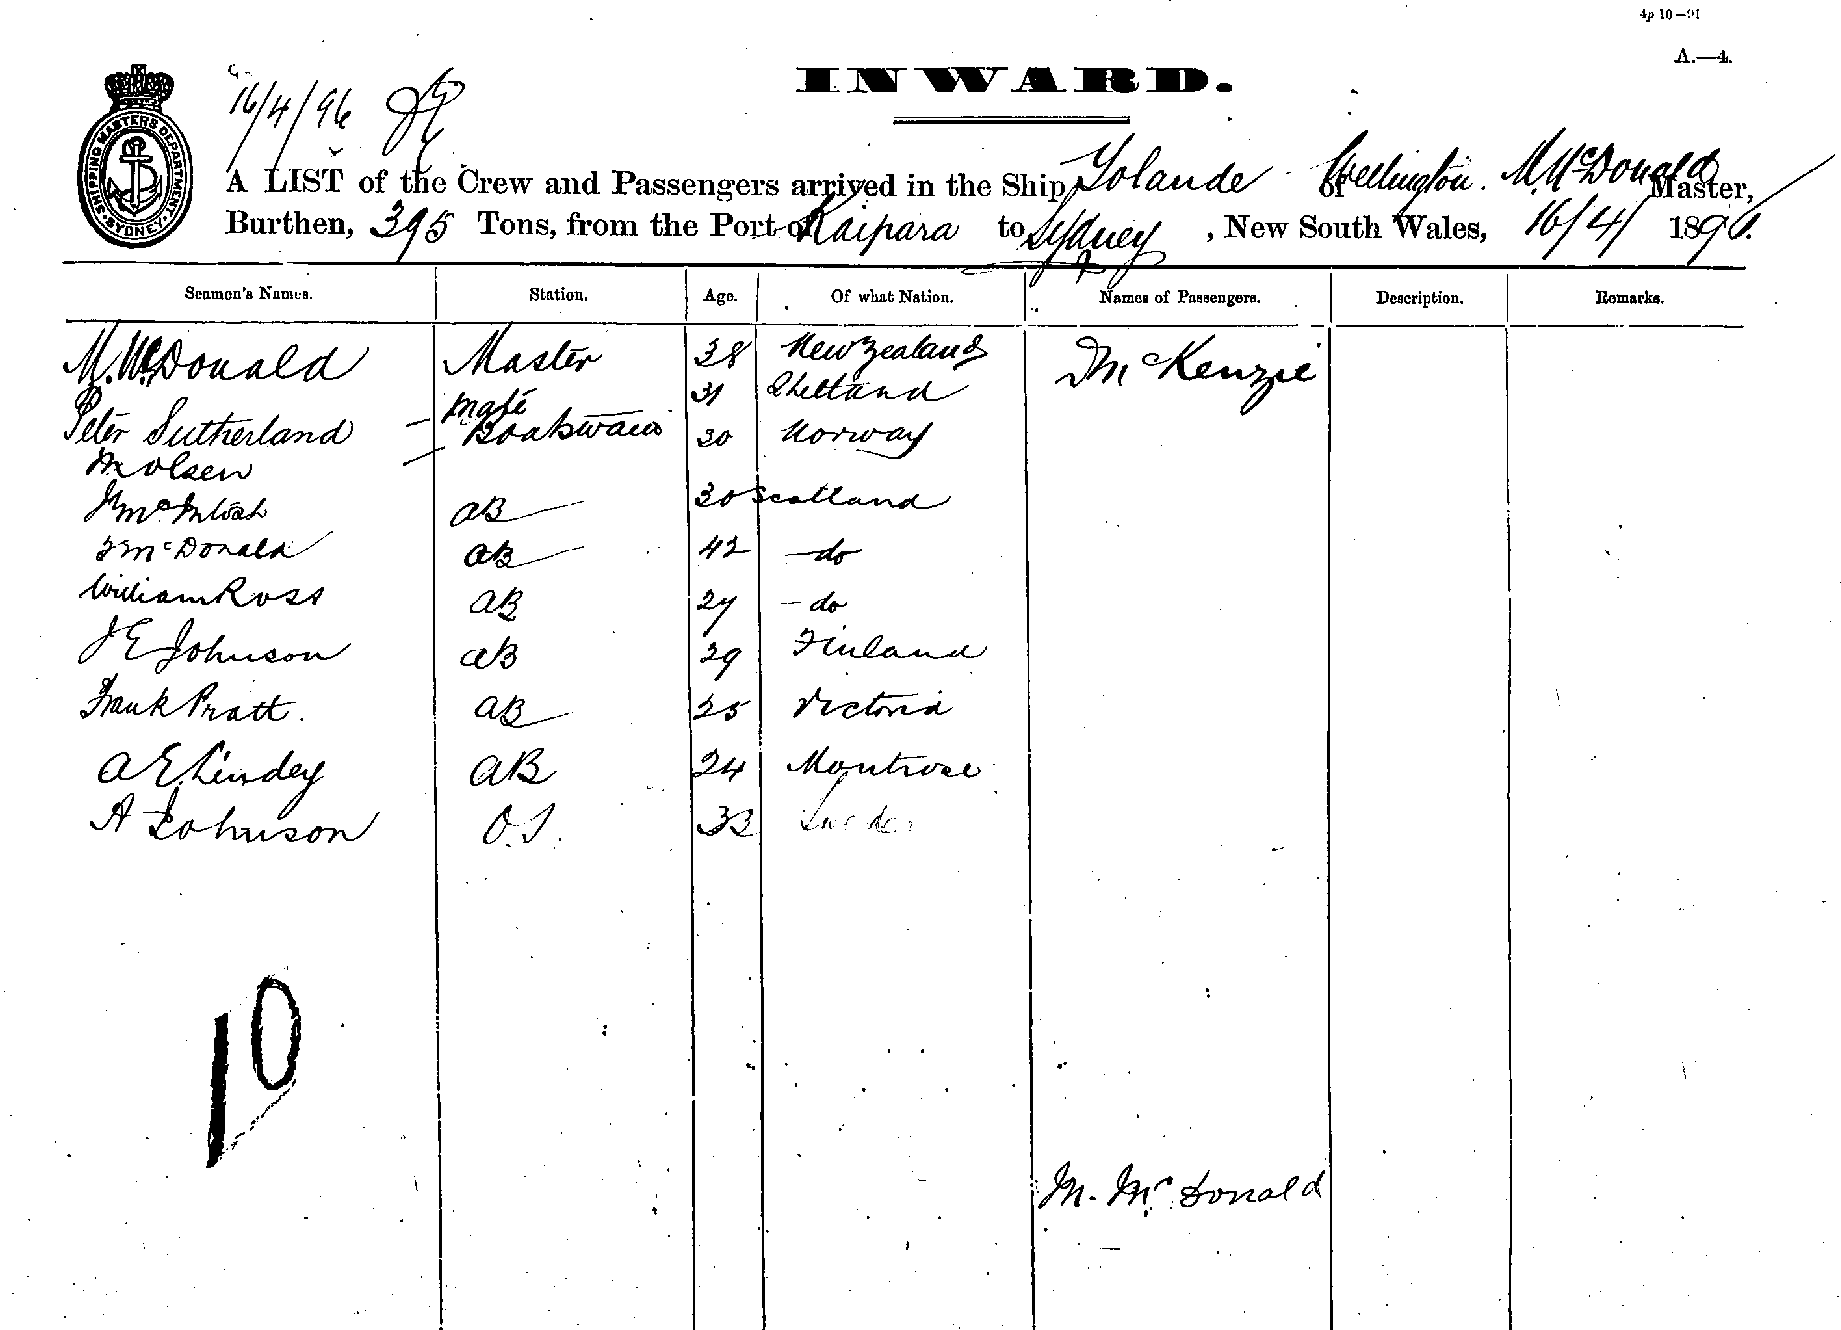 4p 10–91
A.—4.
INWARD.
16/4/96
SHIPPING MASTERS DEPARTMENT. SYDNEY.
A LIST of the Crew and Passengers arrived in the Ship Yolande of Wellington. M. McDonald Master,
Burthen, 395 Tons, from the Port of Kaipara to Sydney, New South Wales, 16/4/ 1896.
Seamen's Names. Station. Age. Of what Nation. Names of Passengers. Description. Remarks.
M. McDonald Master 38 New Zealand McKenzie
Peter Sutherland Mate 31 Shetland
M Olsen Boatswain 30 Norway
McIntosh AB 30 Scotland
McDonald AB 42 do
William Ross AB 27 do
J E Johnson AB 29 Finland
Frank Pratt. AB 25 Victoria
A E Lindey AB 24 Montrose
A Johnson O.S. 33
10
M. McDonald